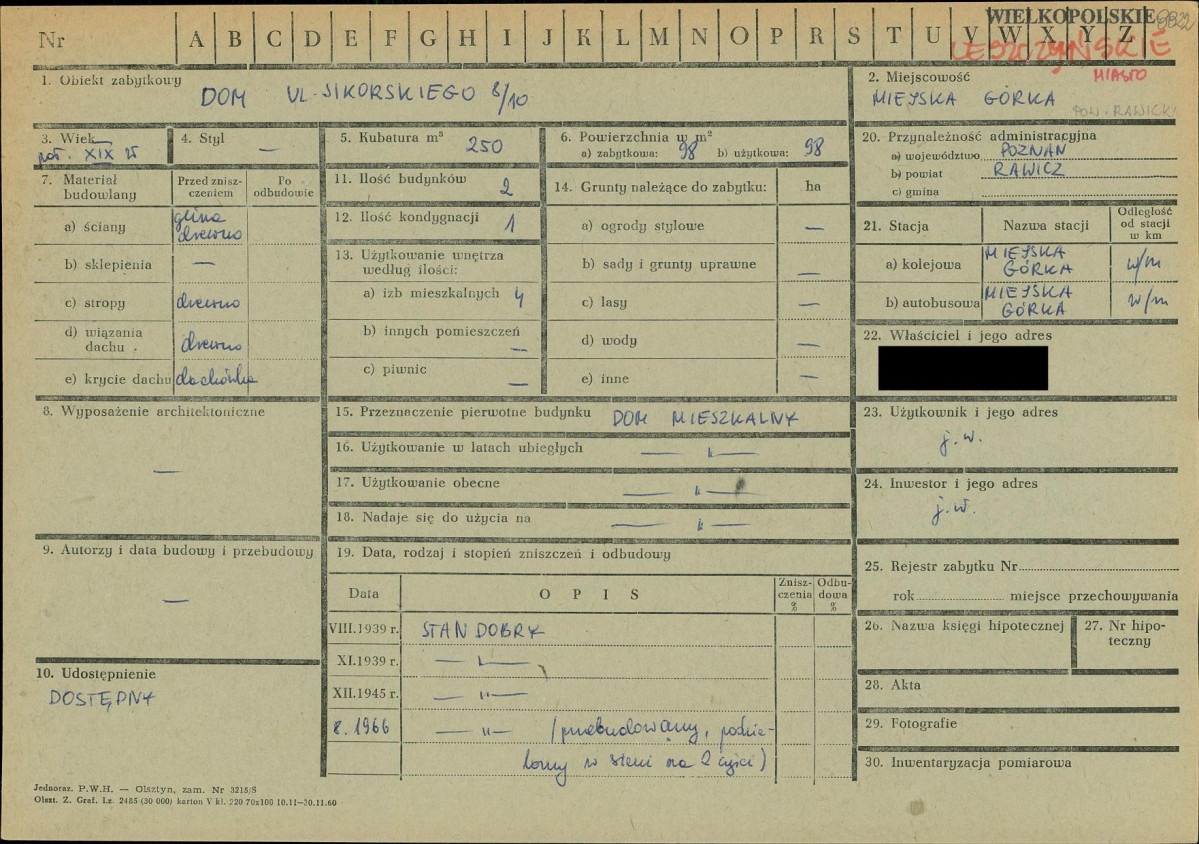 WIELKOPOLSKIE
Nr A B C D E F G H I J K L M N O P R S T U V W X Y Z
LESZCZYŃSKIE
MIASTO
1. Obiekt zabytkowy
DOM UL. SIKORSKIEGO 8/10
2. Miejscowość
MIEJSKA GÓRKA
POW. RAWICKI
3. Wiek
poł. XIX w
4. Styl —
5. Kubatura m³ 250
6. Powierzchnia w m²
a) zabytkowa: 98 b) użytkowa: 98
20. Przynależność administracyjna
a) województwo POZNAŃ
b) powiat RAWICZ
c) gmina
7. Materiał budowlany
Przed zniszczeniem
Po odbudowie
a) ściany glina drewno
b) sklepienia —
c) stropy drewno
d) wiązania dachu drewno
e) krycie dachu dachówka
11. Ilość budynków 2
12. Ilość kondygnacji 1
13. Użytkowanie wnętrza
według ilości:
a) izb mieszkalnych 4
b) innych pomieszczeń —
c) piwnic —
14. Grunty należące do zabytku: ha
a) ogrody stylowe —
b) sady i grunty uprawne —
c) lasy —
d) wody —
e) inne —
21. Stacja
Nazwa stacji
Odległość od stacji w km
a) kolejowa MIEJSKA GÓRKA w/m
b) autobusowa MIEJSKA GÓRKA w/m
22. Właściciel i jego adres
8. Wyposażenie architektoniczne
—
15. Przeznaczenie pierwotne budynku DOM MIESZKALNY
16. Użytkowanie w latach ubiegłych — " —
17. Użytkowanie obecne — " —
18. Nadaje się do użycia na — " —
23. Użytkownik i jego adres
j.w.
24. Inwestor i jego adres
j.w.
9. Autorzy i data budowy i przebudowy
—
10. Udostępnienie
DOSTĘPNY
19. Data, rodzaj i stopień zniszczeń i odbudowy
Data
OPIS
Zniszczenia %
Odbudowa %
VIII.1939 r. STAN DOBRY
XI.1939 r. — " —
XII.1945 r. — " —
8. 1966 — " — (przebudowany, podzie-
lony w sieni na 2 części)
25. Rejestr zabytku Nr
rok miejsce przechowywania
26. Nazwa księgi hipotecznej
27. Nr hipoteczny
28. Akta
29. Fotografie
30. Inwentaryzacja pomiarowa
Jednoraz. P.W.H. — Olsztyn, zam. Nr 3215/S
Olszt. Z. Graf. Lz. 2485 (30 000) karton V kl. 220 70x100 10.11—30.11.60